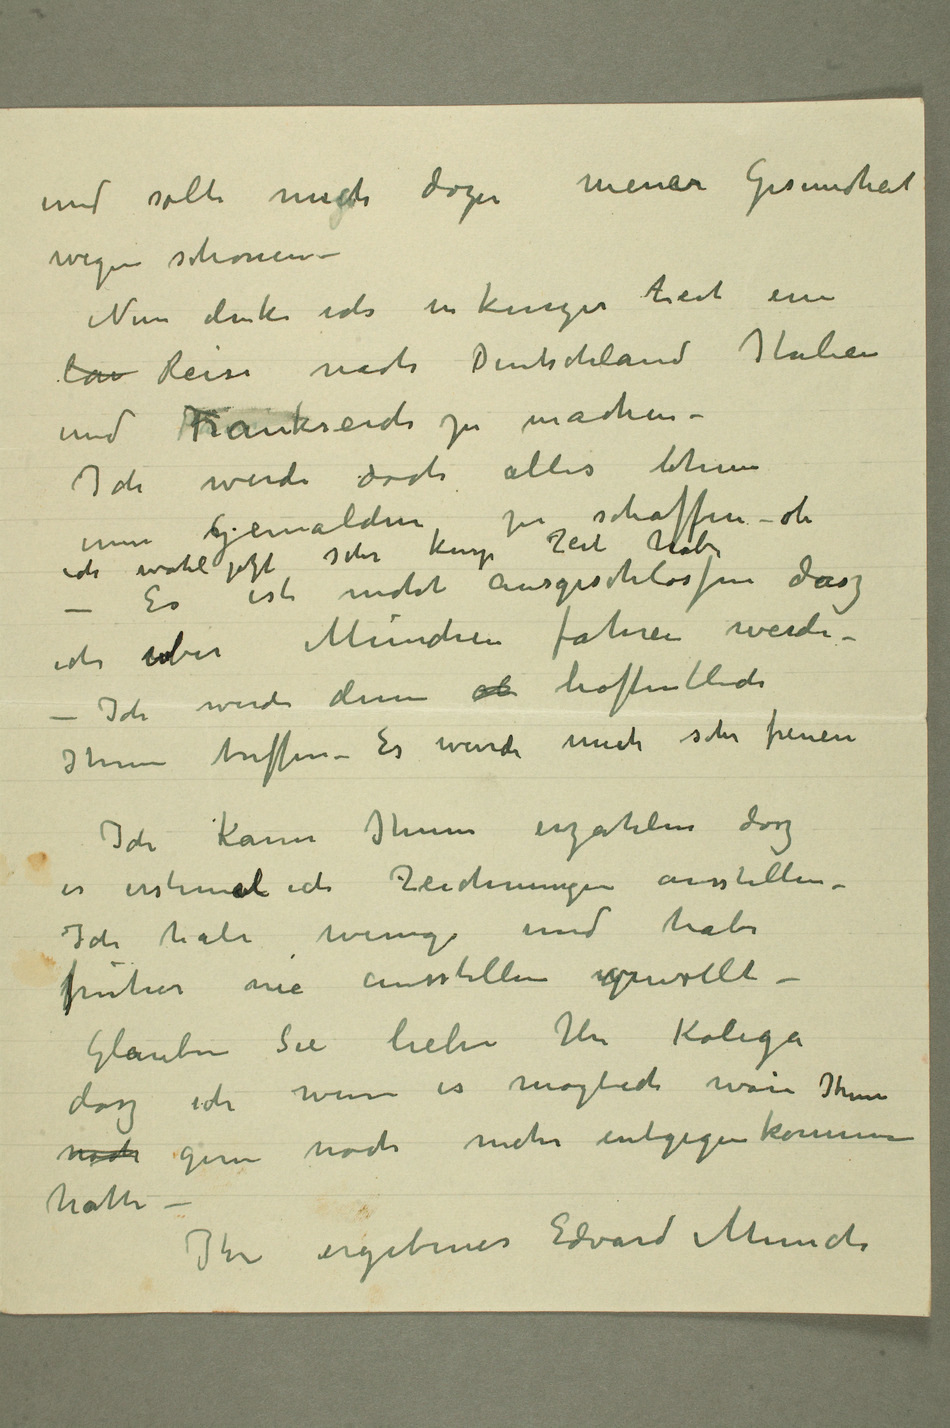 und solte mich dazu meiner Gesundheit
wegen schonen –
Nun denke ich in kurzer Zeit eine
lan Reise nach Deutschland Italien
und Frankreich zu machen –
Ich werde doch alles thun
um Gemälden zu schaffen – ob
ich wohl jetzt sehr kurze Zeit habe
– Es ist nicht ausgeschlossen dasz
ich über München fahren werde –
– Ich werde denn ob hoffentlich
Ihnen treffen – Es wurde mich sehr freuen
Ich kann Ihnen erzählen dasz
es erstemal ich Zeichnungen ausstellen –
Ich habe wenige und habe
früher nie ausstellen gewollt –
Glauben Sie lieber Hr Kolega
dasz ich wenn es moglich wäre Ihnen
noch gern noch mehr entgegenkommen
hätte –
Ihr ergebener Edvard Munch